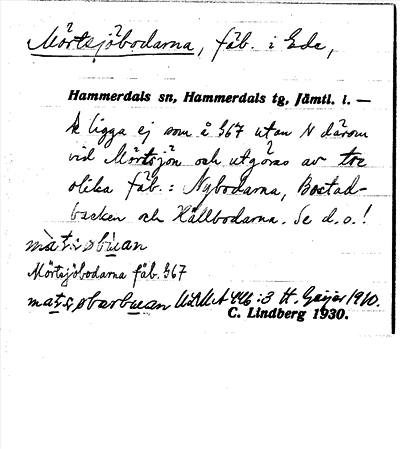 Mörtsjöbodarna, fäb. i Ede,
Hammerdals sn, Hammerdals tg, Jämtl. l. —
ligga ej som å 367 utan N därom
vid Mörtsjön och utgöras av tre
olika fäb.: Nybodarna, Bostad-
backen och Hällbodarna. Se d.o.!
Mörtsjöbodarna fäb. 367
446:3 H. Geijer 1910.
C. Lindberg 1930.